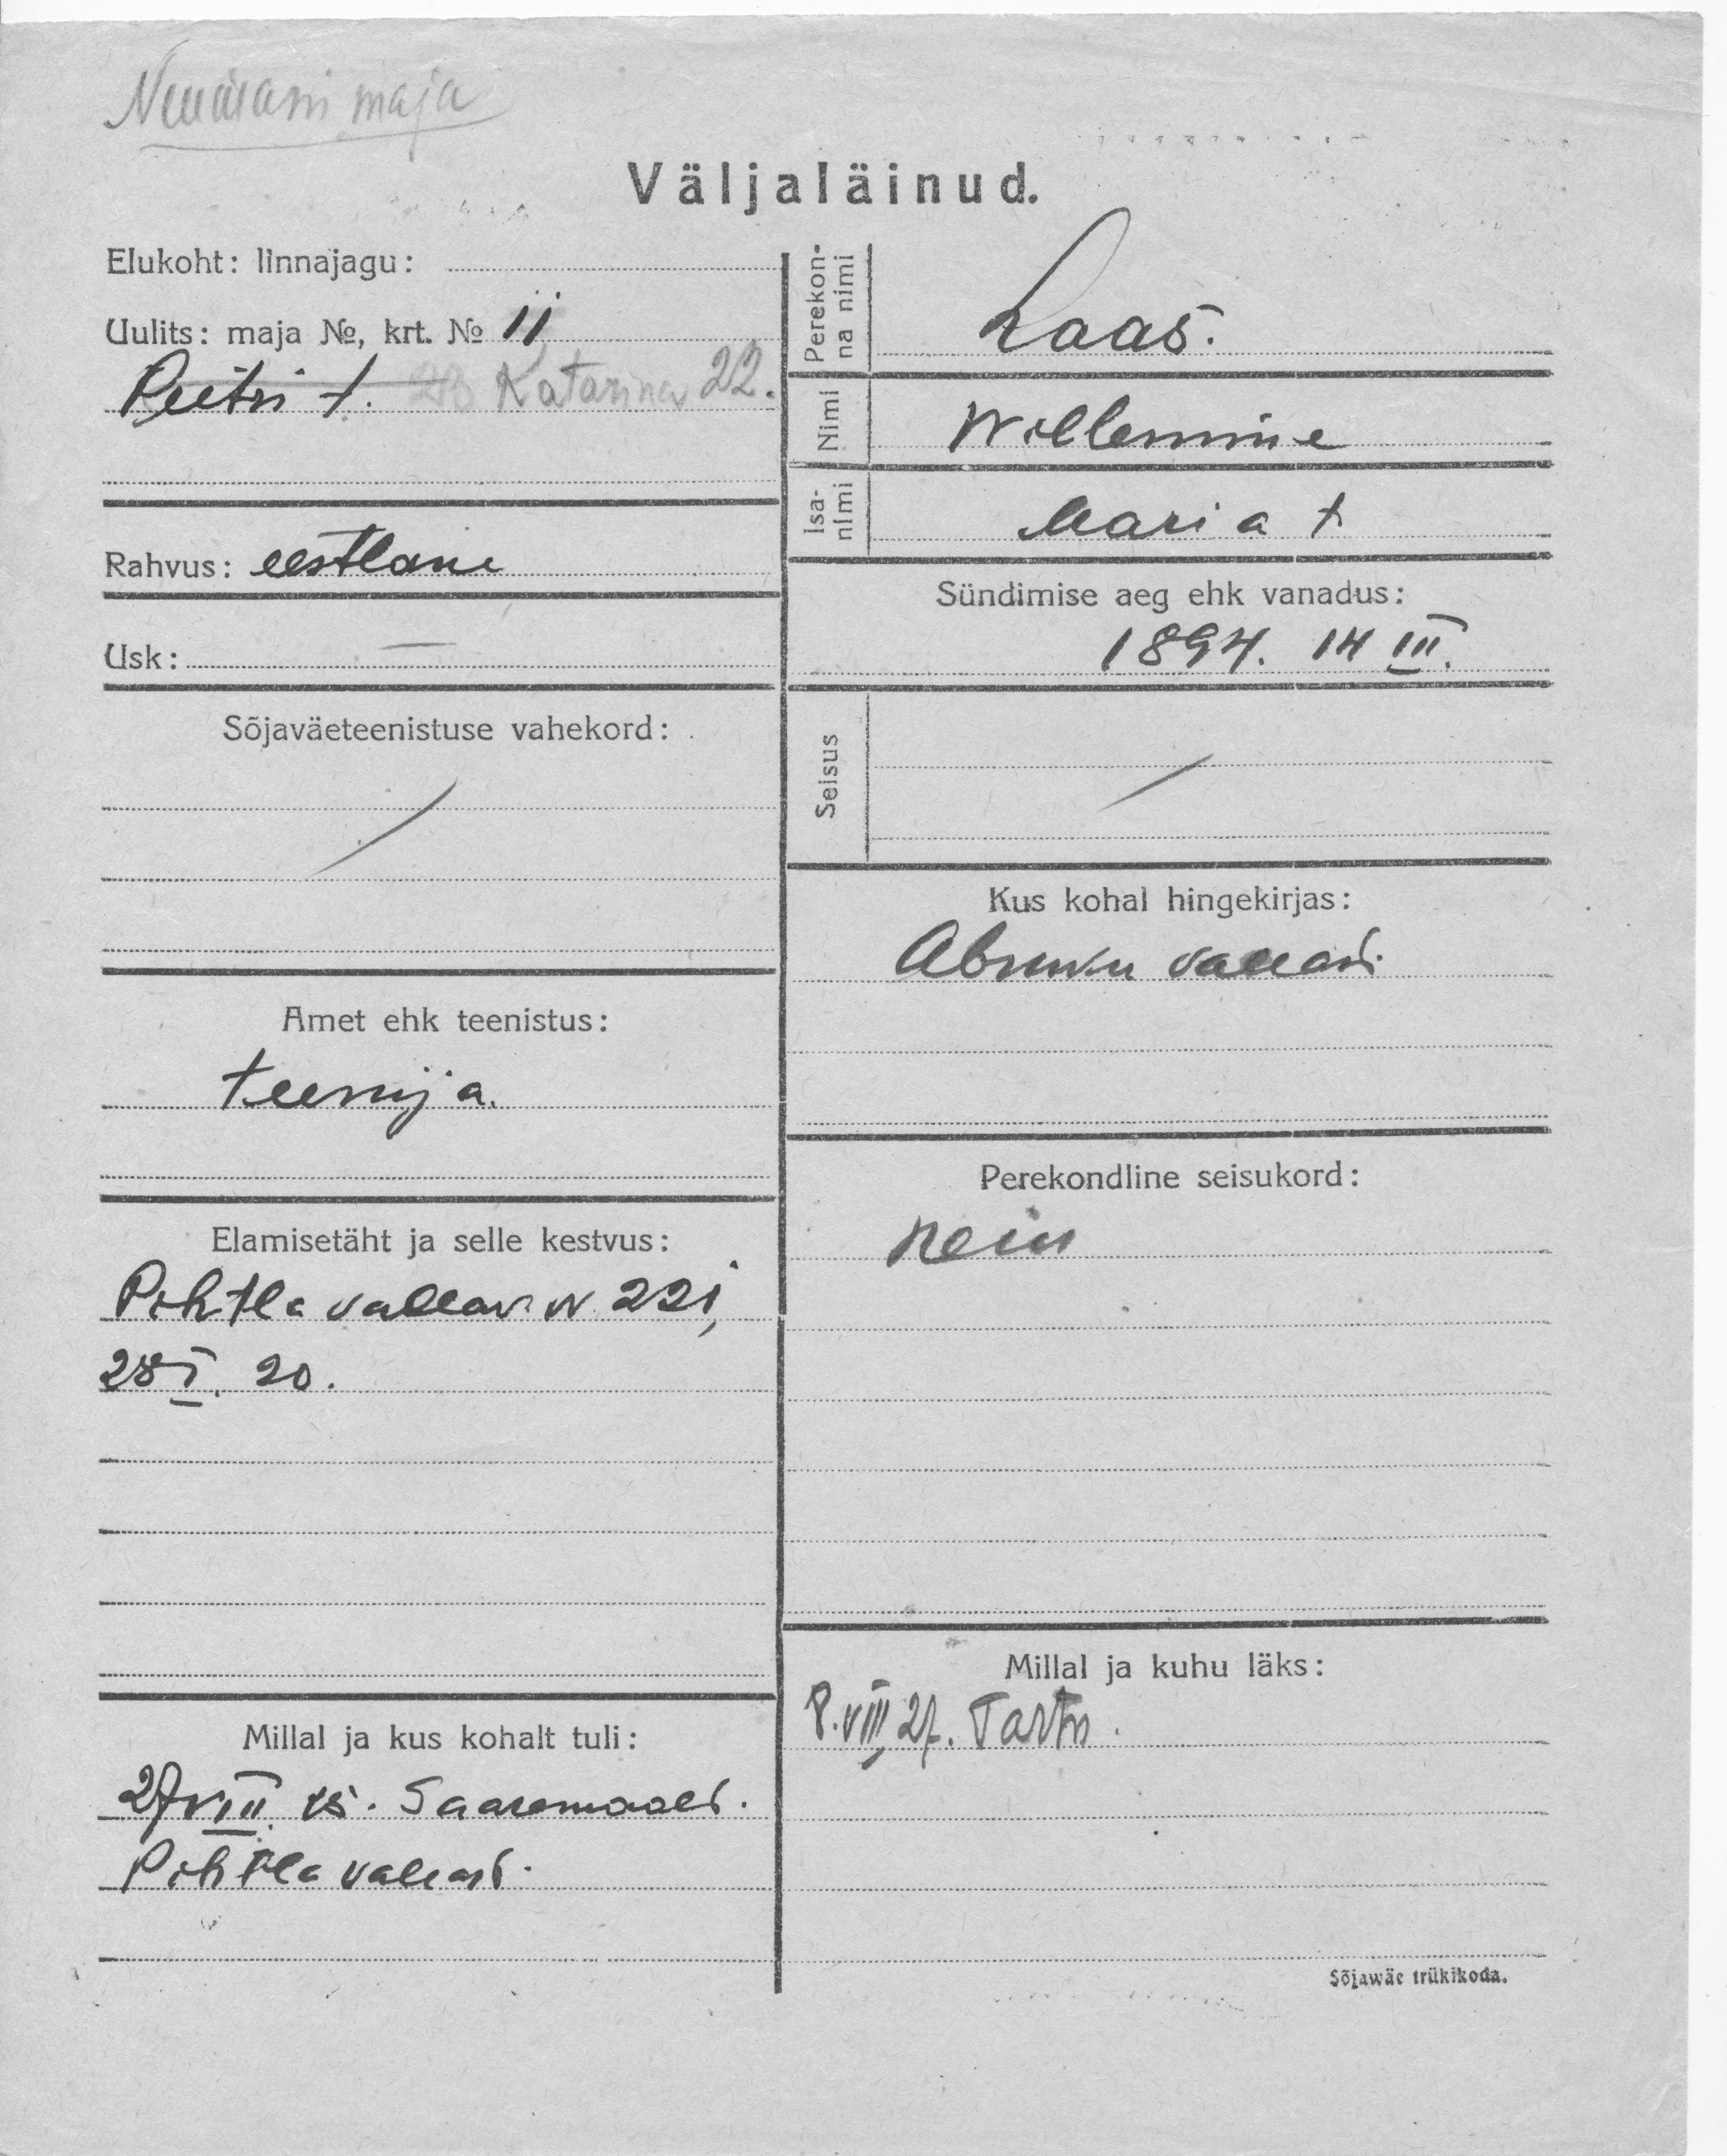 Neumani maja
Väljaläinud.
Elukoht: linnajagu:
Uulits: maja №, krt. № 11
Peetri t. Katarina 22.
Rahvus: eestlane
Usk: —
Sõjaväeteenistuse vahekord:
Amet ehk teenistus:
teenija.
Elamisetäht ja selle kestvus:
Pihtla vallav. N 221,
28 I. 20.
Millal ja kus kohalt tuli:
27 VIII. Saaremaalt.
Pihtla vallast.
Perekon-
na nimi
Laas.
Nimi
Willemine
Isa-
nimi
Maria t
Sündimise aeg ehk vanadus:
1894. 14 III.
Seisus
Kus kohal hingekirjas:
Abruku vallas.
Perekondline seisukord:
Millal ja kuhu läks:
8. VIII, 27. Tartu.
Sõjawäe trükikoda.